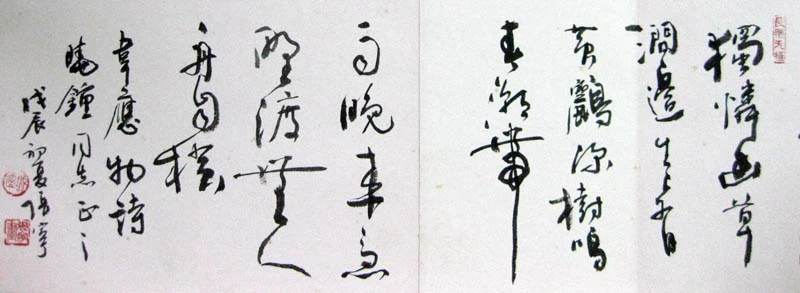 獨憐幽草
澗邊生上有
黃鸝深樹鳴
春潮帶
雨晚來急
野渡無人
舟自橫
韋應物詩
曉鐘同志正之
戊辰初夏